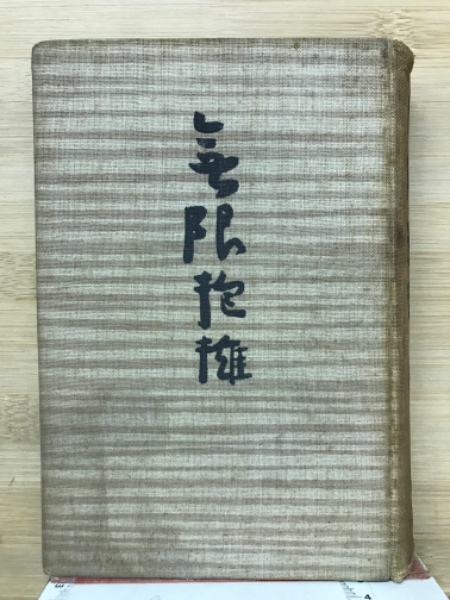 無限抱擁